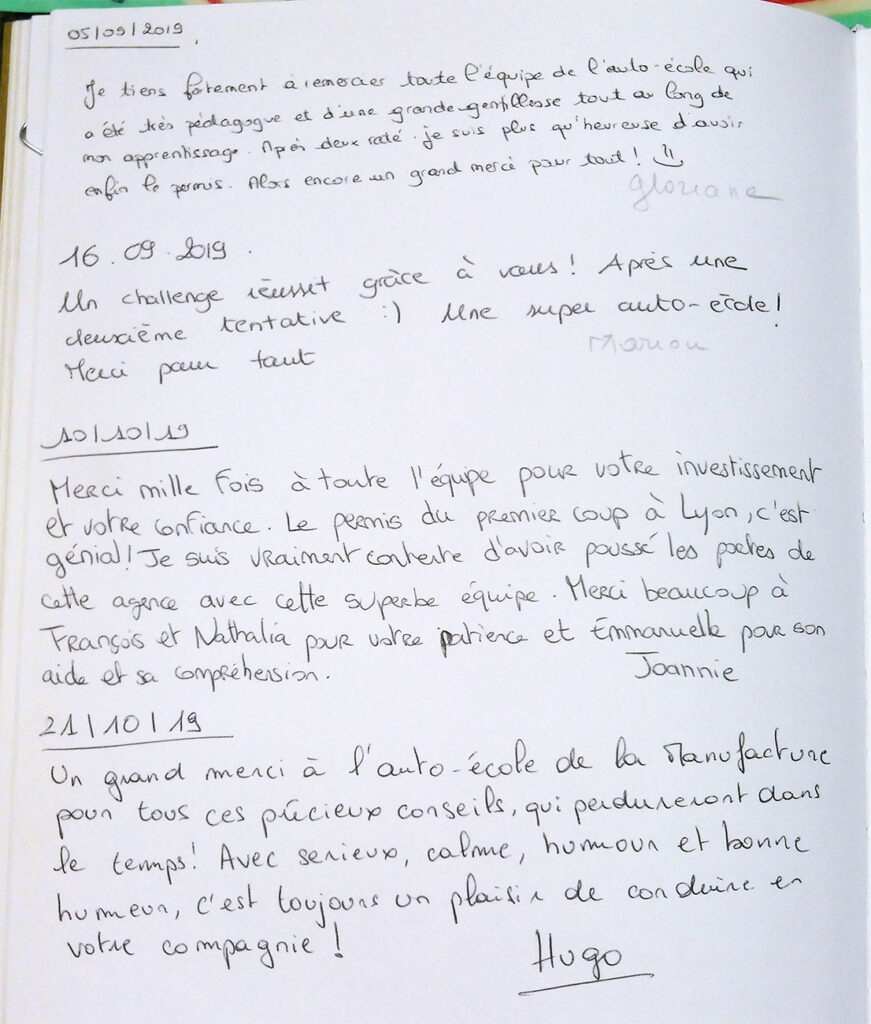 05/09/2019
Je tiens fortement à remercier toute l'équipe de l'auto-école qui
a été très pédagogue et d'une grande gentillesse tout au long de
mon apprentissage. Après deux raté. je suis plus qu'heureuse d'avoir
enfin le permis. Alors encore un grand merci pour tout ! :)
Gloriane
16.09.2019.
Un challenge réussit grâce à vous ! Après une
deuxième tentative :) Une super auto-école !
Merci pour tout
Marion
10/10/19
Merci mille fois à toute l'équipe pour votre investissement
et votre confiance. Le permis du premier coup à Lyon, c'est
génial ! Je suis vraiment contente d'avoir poussé les portes de
cette agence avec cette superbe équipe. Merci beaucoup à
François et Nathalia pour votre patience et Emmanuelle pour son
aide et sa compréhension.
Joannie
21/10/19
Un grand merci à l'auto-école de la Manufacture
pour tous ces précieux conseils, qui perdureront dans
le temps ! Avec serieux, calme, humour et bonne
humeur, c'est toujours un plaisir de conduire en
votre compagnie !
Hugo